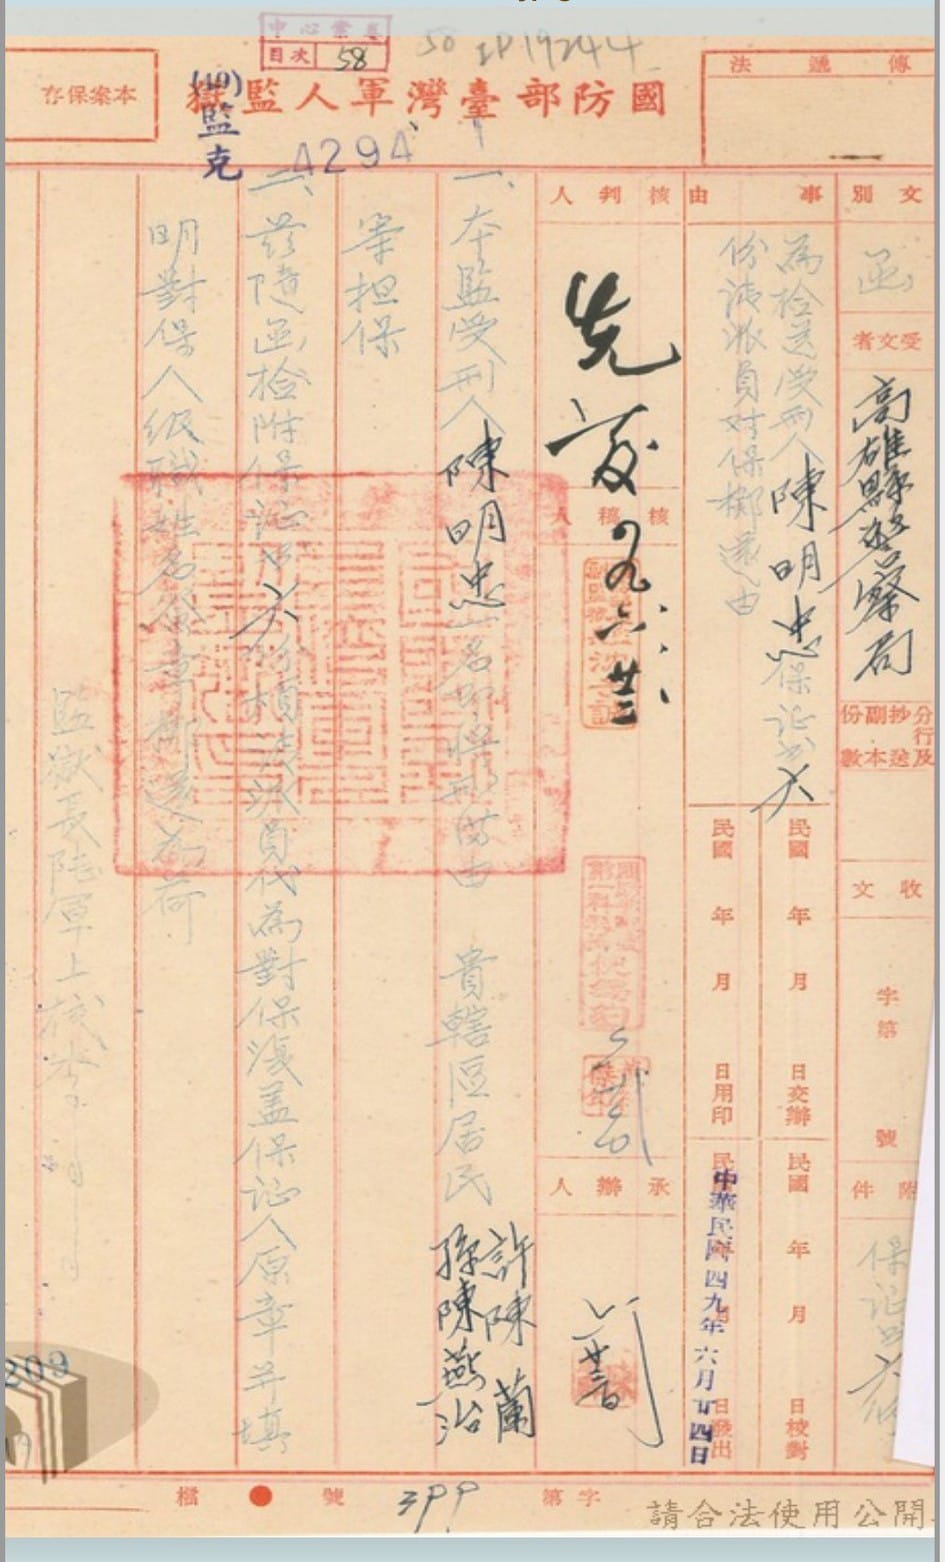 中心業務
目次 58
50 IP19244
國防部臺灣軍人監獄
(49)監克
4294
本案保存
傳遞法
文別
函
受文者
高雄縣警察局
分行及抄送副本份數
收文
字第 號
附件
保証書
事由
為檢送受刑人陳明忠保証書大
份請派員对保擲還由
民國 年 月 日交辦
民國 年 月 日校對
民國 年 月 日用印
中華民國四九年六月廿四日
日發出
核判人
先發
九、六、廿三、
核稿人
承辦人
一、本監受刑人陳明忠一名即將刑滿由 貴轄區居民
許陳蘭
孫陳燕治
等担保
二、茲隨函檢附保証書大份煩請派員代為對保後蓋保証人原章並填
明對保人級職姓名發章擲還為荷
監獄長陸軍上校
檔號
字第
399
309
請合法使用公開